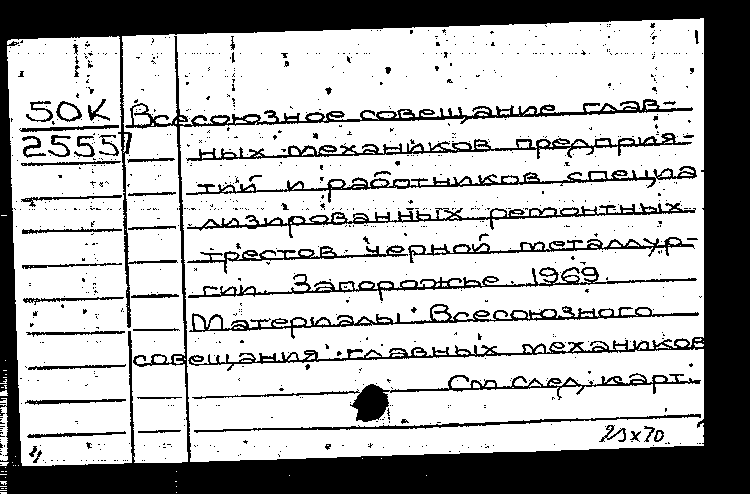 50К Всесоюзное совещание глав-
25557 ных механиков предприя-
тий и работников специа
лизированных ремонтных
трестов черной металлур-
гии. Запорожье. 1969.
Материалы Всесоюзного
совещания главных механиков
См. след. карт.